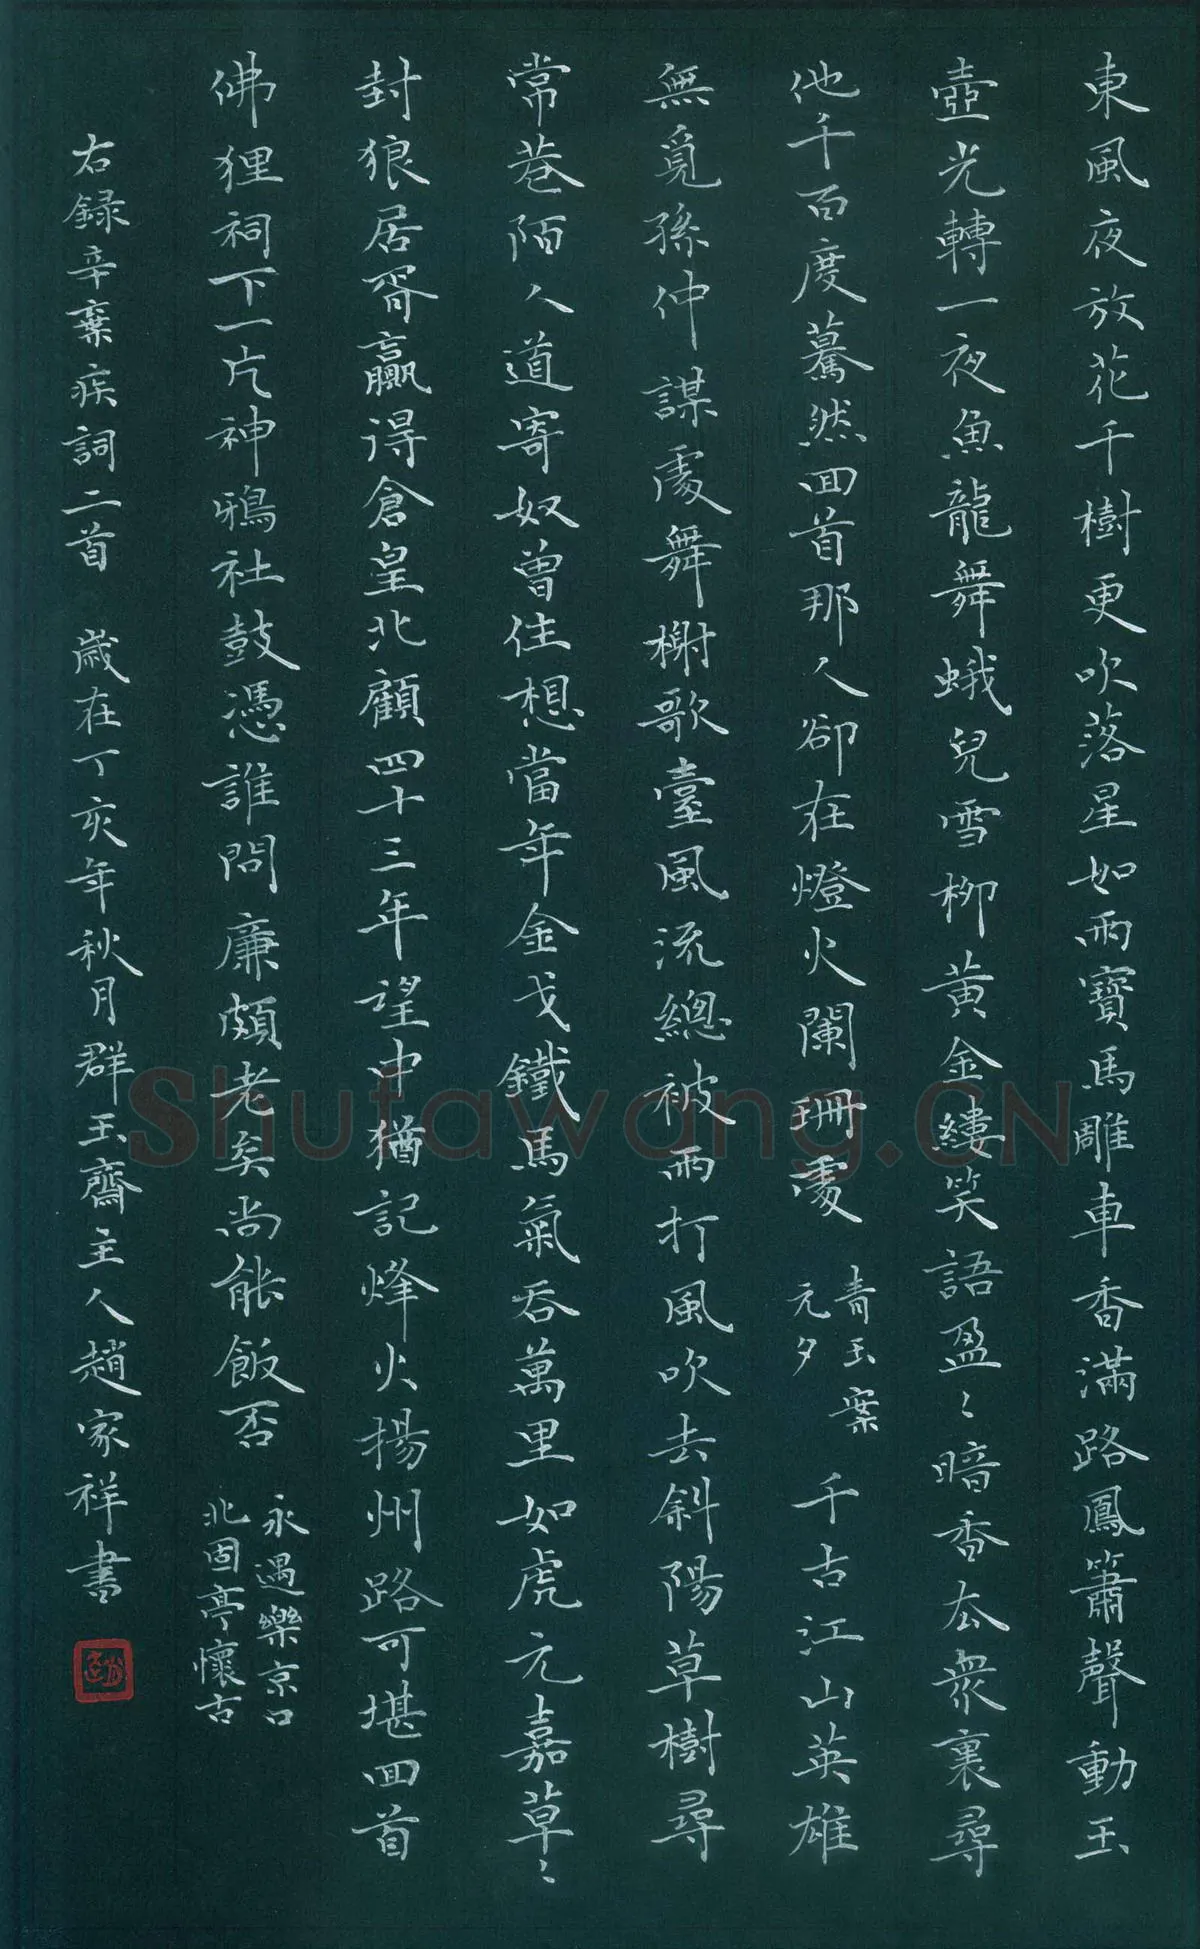 東風夜放花千樹更吹落星如雨寶馬雕車香滿路鳳簫聲動玉
壺光轉一夜魚龍舞蛾兒雪柳黄金縷笑語盈〻暗香去衆裏尋
他千百度驀然回首那人卻在燈火闌珊處 青玉案
元夕
千古江山英雄
無覓孫仲謀處舞榭歌臺風流總被雨打風吹去斜陽草樹尋
常巷陌人道寄奴曾住想當年金戈鐵馬氣吞萬里如虎元嘉草〻
封狼居胥贏得倉皇北顧四十三年望中猶記烽火揚州路可堪回首
佛狸祠下一片神鴉社鼓憑誰問廉頗老矣尚能飯否 永遇樂京口
北固亭懷古
右録辛棄疾詞二首 歲在丁亥年秋月群玉齋主人趙家祥書
Shufawang.CN